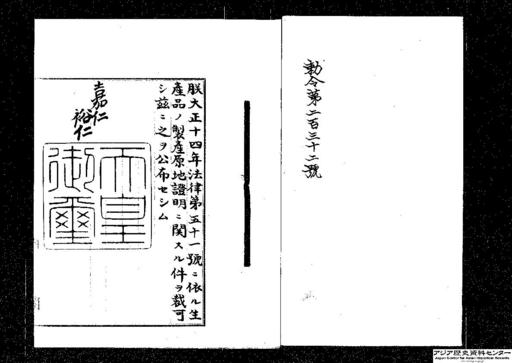 勅令第二百三十二號
朕大正十四年法律第五十一號ニ依ル生
產品ノ製產原地證明ニ関スル件ヲ裁可
シ茲ニ之ヲ公布セシム
嘉仁
裕仁
天皇
御璽
アジア歴史資料センター
Japan Center for Asian Historical Records